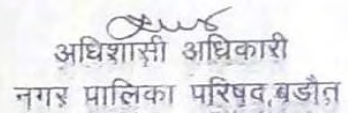 अधिशासी अधिकारी
नगर पालिका परिषद,बडौत